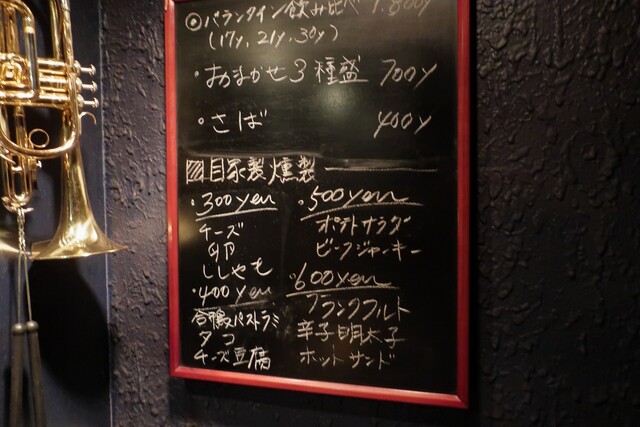 ◎バランタイン飲み比べ 1,800y
(17y, 21y, 30y)
・おまかせ3種盛 700y
・さば 400y
▨自家製燻製
・300yen
チーズ
卵
ししゃも
・400yen
合鴨パストラミ
タコ
チーズ豆腐
・500yen
ポテトサラダ
ビーフジャーキー
・600yen
フランクフルト
辛子明太子
ホットサンド